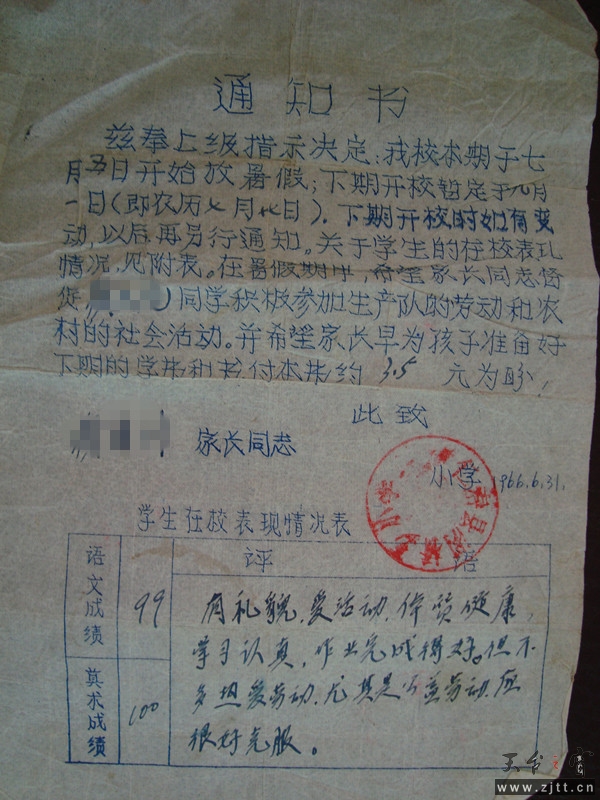 通知书
兹奉上级指示决定:我校本期于七
月五日开始放暑假;下期开校暂定于九月
一日(即农历七月十七日)。下期开校时如有变
动,以后再另行通知。关于学生的在校表现
情况,见附表。在暑假期中,希望家长同志督
促 )同学积极参加生产队的劳动和农
村的社会活动。并希望家长早为孩子准备好
下期的学费和书付本费约 3.5 元为盼!
此致
家长同志
小学 1966.6.31.
小学
学生在校表现情况表
语文成绩 99
评语
有礼貌,爱活动,体质健康,
学习认真,作业完成得好。但不
多热爱劳动,尤其是公益劳动,应
很好克服。
算术成绩 100
天台
www.zjtt.cn